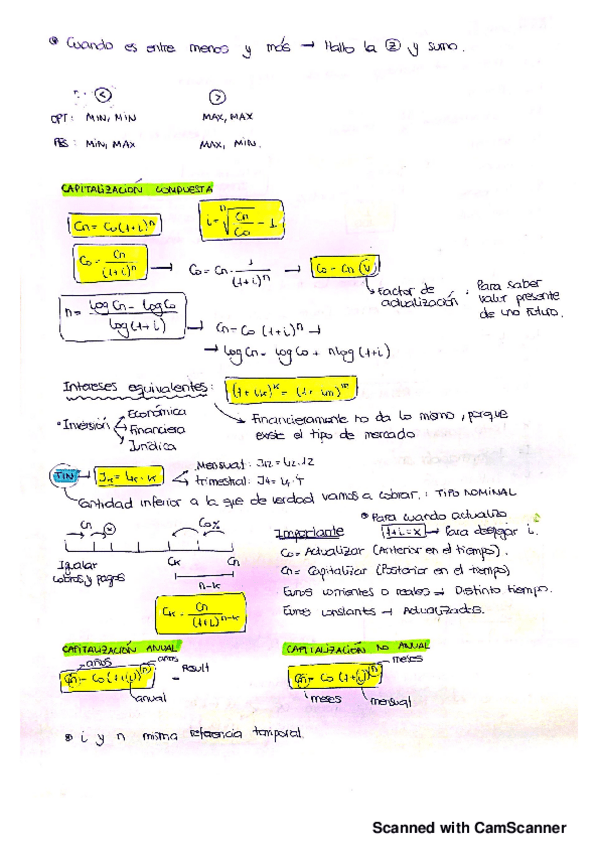 Cuando es entre menos y más → Hallo la ② y sumo.
< >
OPT: MIN, MIN MAX, MAX
PES: MIN, MAX MAX, MIN.
CAPITALIZACIÓN COMPUESTA
Cn = Co(1+i)^n i = n√(Cn/Co) - 1
Co = Cn/(1+i)^n → Co = Cn · 1/(1+i)^n → Co = Cn (v)
Factor de actualización : Para saber valor presente de uno futuro.
n = (log Cn - log Co)/log(1+i) → Cn = Co (1+i)^n →
→ log Cn = log Co + n log (1+i)
Intereses equivalentes: (1+ik)^k = (1+im)^m
• Inversión Económica
Financiera
Jurídica
Financieramente no da lo mismo, porque
existe el tipo de mercado
TIN → Jk = ik · k Mensual: J12 = i12 · 12
trimestral: J4 = i4 · 4
Cantidad inferior a la que de verdad vamos a cobrar. : TIPO NOMINAL
• Para cuando actualizo
1+i = x → Para despejar i.
Cn Co%
Igualar
cobros y pagos
Ck Cn
n-k
Ck = Cn/(1+i)^n-k
Importante
Co = Actualizar (Anterior en el tiempo).
Cn = Capitalizar (Posterior en el tiempo)
Euros corrientes o reales → Distinto tiempo.
Euros constantes → Actualizados.
CAPITALIZACIÓN ANUAL CAPITALIZACIÓN NO ANUAL
años años meses
Cn = Co (1+i)^(n) - Result Cn = Co (1+i)^(n)
anual meses mensual
• i y n misma referencia temporal.
Scanned with CamScanner